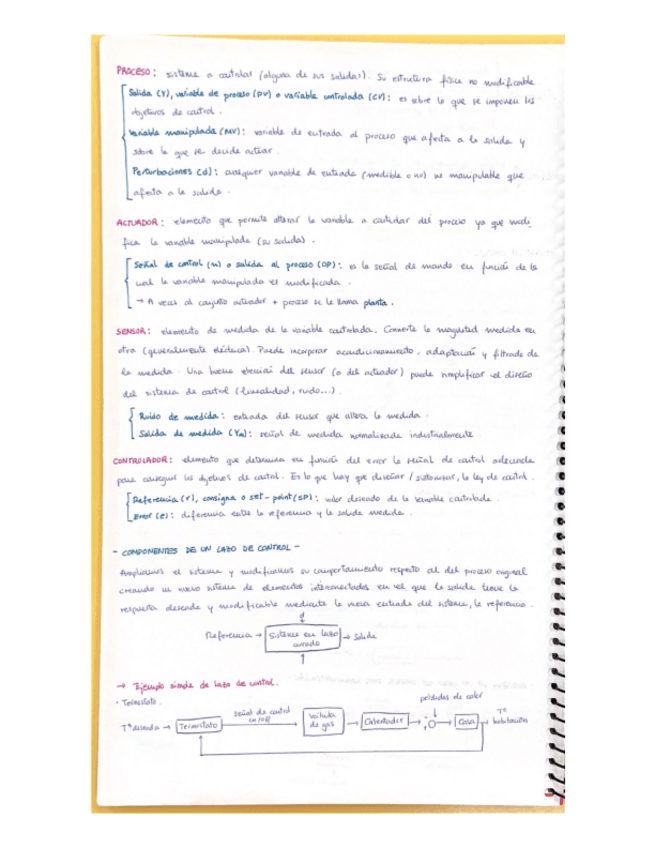 PROCESO: sistema a controlar (alguna de sus salidas). Su estructura física no modificable.
Salida (Y), variable de proceso (PV) o variable controlada (CV): es sobre lo que se imponen los
objetivos de control.
Variable manipulada (MV): variable de entrada al proceso que afecta a la salida y
sobre la que se decide actuar.
Perturbaciones (d): cualquier variable de entrada (medible o no) no manipulable que
afecta a la salida.
ACTUADOR: elemento que permite alterar la variable a controlar del proceso ya que modi
fica la variable manipulada (su salida).
Señal de control (u) o salida al proceso (OP): es la señal de mando en función de la
cual la variable manipulada es modificada.
→ A veces al conjunto actuador + proceso se le llama planta.
SENSOR: elemento de medida de la variable controlada. Convierte la magnitud medida en
otra (generalmente eléctrica). Puede incorporar acondicionamiento, adaptación y filtrado de
la medida. Una buena elección del sensor (o del actuador) puede simplificar el diseño
del sistema de control (linealidad, ruido...).
Ruido de medida: entrada del sensor que altera la medida.
Salida de medida (Ym): señal de medida normalizada industrialmente.
CONTROLADOR: elemento que determina en función del error la señal de control adecuada
para conseguir los objetivos de control. Es lo que hay que diseñar / sintonizar, la ley de control.
Referencia (r), consigna o set-point (SP): valor deseado de la variable controlada.
Error (e): diferencia entre la referencia y la salida medida.
- COMPONENTES DE UN LAZO DE CONTROL -
Ampliamos el sistema y modificamos su comportamiento respecto al del proceso original
creando un nuevo sistema de elementos interconectados en el que la salida tiene la
respuesta deseada y modificable mediante la nueva entrada del sistema, la referencia.
d
Referencia → Sistema en lazo → Salida
cerrado
→ Ejemplo simple de lazo de control.
· Termostato.
pérdidas de calor
señal de control
on/off
Tª deseada → Termostato → Válvula de gas → Calentador → Casa → Tª habitación